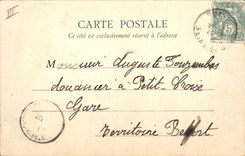 III
CARTE POSTALE
Ce côté est exclusivement réservé à l'adresse
5
Monsieur Auguste
douanier à Petit-Croix
Gare
Territoire Belfort